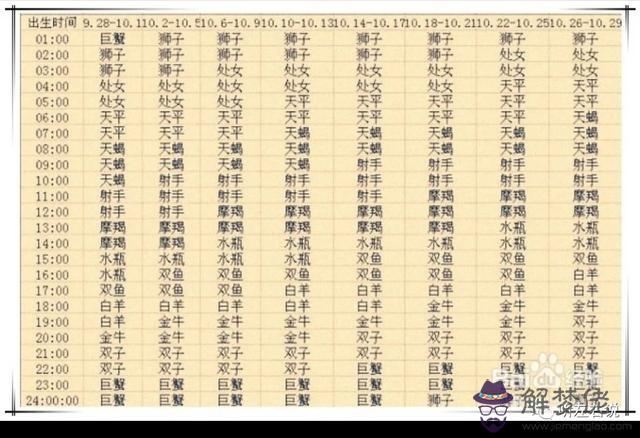 出生时间 9.28-10.1 10.2-10.5 10.6-10.9 10.10-10.13 10.14-10.17 10.18-10.21 10.22-10.25 10.26-10.29
01:00 巨蟹 狮子 狮子 狮子 狮子 狮子 狮子 狮子
02:00 狮子 狮子 狮子 狮子 狮子 狮子 处女 处女
03:00 狮子 狮子 处女 处女 处女 处女 处女 处女
04:00 处女 处女 处女 处女 处女 处女 天平 天平
05:00 处女 处女 天平 天平 天平 天平 天平 天平
06:00 天平 天平 天平 天平 天平 天平 天平 天蝎
07:00 天平 天平 天平 天蝎 天蝎 天蝎 天蝎 天蝎
08:00 天蝎 天蝎 天蝎 天蝎 天蝎 天蝎 天蝎 天蝎
09:00 天蝎 天蝎 天蝎 天蝎 射手 射手 射手 射手
10:00 天蝎 射手 射手 射手 射手 射手 射手 射手
11:00 射手 射手 射手 射手 射手 摩羯 摩羯 摩羯
12:00 射手 射手 摩羯 摩羯 摩羯 摩羯 摩羯 摩羯
13:00 摩羯 摩羯 摩羯 摩羯 摩羯 摩羯 水瓶 水瓶
14:00 摩羯 摩羯 水瓶 水瓶 水瓶 水瓶 水瓶 水瓶
15:00 水瓶 水瓶 水瓶 水瓶 双鱼 双鱼 双鱼 双鱼
16:00 水瓶 双鱼 双鱼 双鱼 双鱼 双鱼 双鱼 白羊
17:00 双鱼 双鱼 双鱼 白羊 白羊 白羊 白羊 白羊
18:00 白羊 白羊 白羊 白羊 白羊 金牛 金牛 金牛
19:00 白羊 金牛 金牛 金牛 金牛 金牛 金牛 双子
20:00 金牛 金牛 金牛 金牛 双子 双子 双子 双子
21:00 双子 双子 双子 双子 双子 双子 双子 双子
22:00 双子 双子 双子 双子 巨蟹 巨蟹 巨蟹 巨蟹
23:00 巨蟹 巨蟹 巨蟹 巨蟹 巨蟹 巨蟹
24:00:00 巨蟹 巨蟹 巨蟹 巨蟹 巨蟹 狮子
解梦佬
www.jiemenglao.com